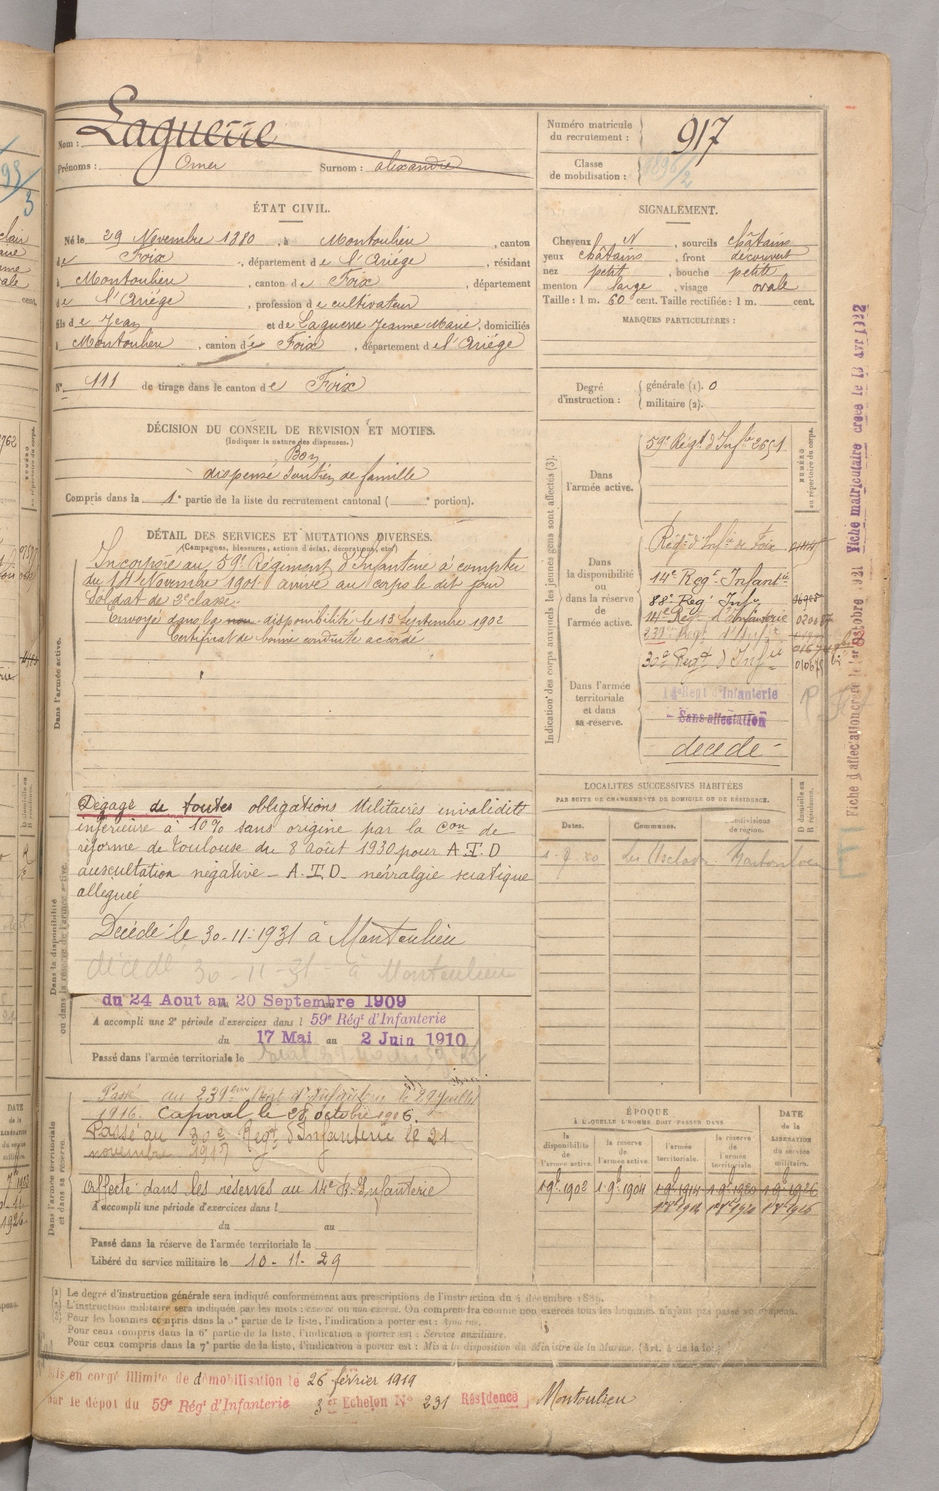 Nom : Laguerre
Prénoms : Omer Surnom : alexandre
Numéro matricule
du recrutement : 917
Classe
de mobilisation :
ÉTAT CIVIL.
Né le 29 Novembre 1880, à Montoulieu, canton
de Foix, département de l'Ariège, résidant
à Montoulieu, canton de Foix, département
de l'Ariège, profession de cultivateur
fils de Jean et de Laguerre Jeanne Marie, domiciliés
à Montoulieu, canton de Foix, département de l'Ariège
N° 111 de tirage dans le canton de Foix
SIGNALEMENT.
Cheveux N, sourcils châtains
yeux châtains, front découvert
nez petit, bouche petite
menton large, visage ovale
Taille : 1 m. 60 cent. Taille rectifiée : 1 m. cent.
MARQUES PARTICULIÈRES :
Degré
d'instruction :
générale (1). 0
militaire (2).
DÉCISION DU CONSEIL DE REVISION ET MOTIFS.
(Indiquer la nature des dispenses.)
Bon
dispensé soutien de famille
Compris dans la 1e partie de la liste du recrutement cantonal ( portion).
DÉTAIL DES SERVICES ET MUTATIONS DIVERSES.
(Campagnes, blessures, actions d'éclat, décorations, etc.)
Dans l'armée active.
Incorporé au 59e Régiment d'Infanterie à compter
du 14 Novembre 1901 arrivé au corps le dit jour
Soldat de 2e classe.
Envoyé dans la disponibilité le 13 Septembre 1902
Certificat de bonne conduite accordé
Dans la disponibilité
ou dans la réserve de l'armée active.
Dégagé de toutes obligations Militaires invalidité
inférieure à 10% sans origine par la Con de
réforme de Toulouse du 8 Août 1930 pour A.T.D
auscultation négative - A.T.D - névralgie sciatique
alléguée
Décédé le 30-11-1931 à Montoulieu
décédé 30-11-31 à Montoulieu
du 24 Aout au 20 Septembre 1909
A accompli une 2e période d'exercices dans l 59e Régt d'Infanterie
du 17 Mai au 2 Juin 1910
Passé dans l'armée territoriale le
Dans l'armée territoriale
et dans sa réserve.
Passé au 231ème Régt d'Infanterie le 29 juillet
1916. Caporal le 28 octobre 1916.
Passé au 30e Régt d'Infanterie le 21
novembre 1917
Affecté dans les réserves au 14e R. Infanterie
A accompli une période d'exercices dans l
du au
Passé dans la réserve de l'armée territoriale le
Libéré du service militaire le 10-11-29
Indication des corps auxquels les jeunes gens sont affectés (3).
NUMÉRO
au répertoire du corps.
Dans
l'armée active.
59e Régt d'Infie
Dans
la disponibilité
ou
dans la réserve
de
l'armée active.
Régt d'Infie de Foix
14e Régt Infantie
88e Régt Infie
14e Régt d'Infanterie
231e Régt d'Infie
30e Régt d'Infie
Dans l'armée
territoriale
et dans
sa réserve.
14e Regt d'Infanterie
Sans affectation
décédé
LOCALITÉS SUCCESSIVES HABITÉES
PAR SUITE DE CHANGEMENTS DE DOMICILE OU DE RÉSIDENCE.
Dates. Communes. Subdivisions
de région. D domicile ou
R résidence.
ÉPOQUE
À LAQUELLE L'HOMME DOIT PASSER DANS
la
disponibilité
de
l'armée active.
la réserve
de
l'armée active.
l'armée
territoriale.
la réserve
de l'armée
territoriale.
DATE
de la
LIBÉRATION
du service
militaire.
1-9bre 1902 1-9bre 1904 1-9bre 1914 1-9bre 1920 1-9bre 1926
Fiche d'affectation créée le 1er Octobre 1921 Fiche matriculaire créée le 13 Avr 1922
(1) Le degré d'instruction générale sera indiqué conformément aux prescriptions de l'instruction du 4 décembre 1889.
(2) L'instruction militaire sera indiquée par les mots : exercé ou non exercé. On comprendra comme non exercés tous les hommes n'ayant pas passé au drapeau.
(3) Pour les hommes compris dans la 5e partie de la liste, l'indication à porter est : Ajournés.
Pour ceux compris dans la 6e partie de la liste, l'indication à porter est : Service auxiliaire.
Pour ceux compris dans la 7e partie de la liste, l'indication à porter est : Mis à la disposition du Ministre de la Marine. (Art. 4 de la loi.)
Mis en congé illimité de démobilisation le 26 février 1919
par le dépôt du 59e Régt d'Infanterie 3er Echelon N° 231 Résidence Montoulieu